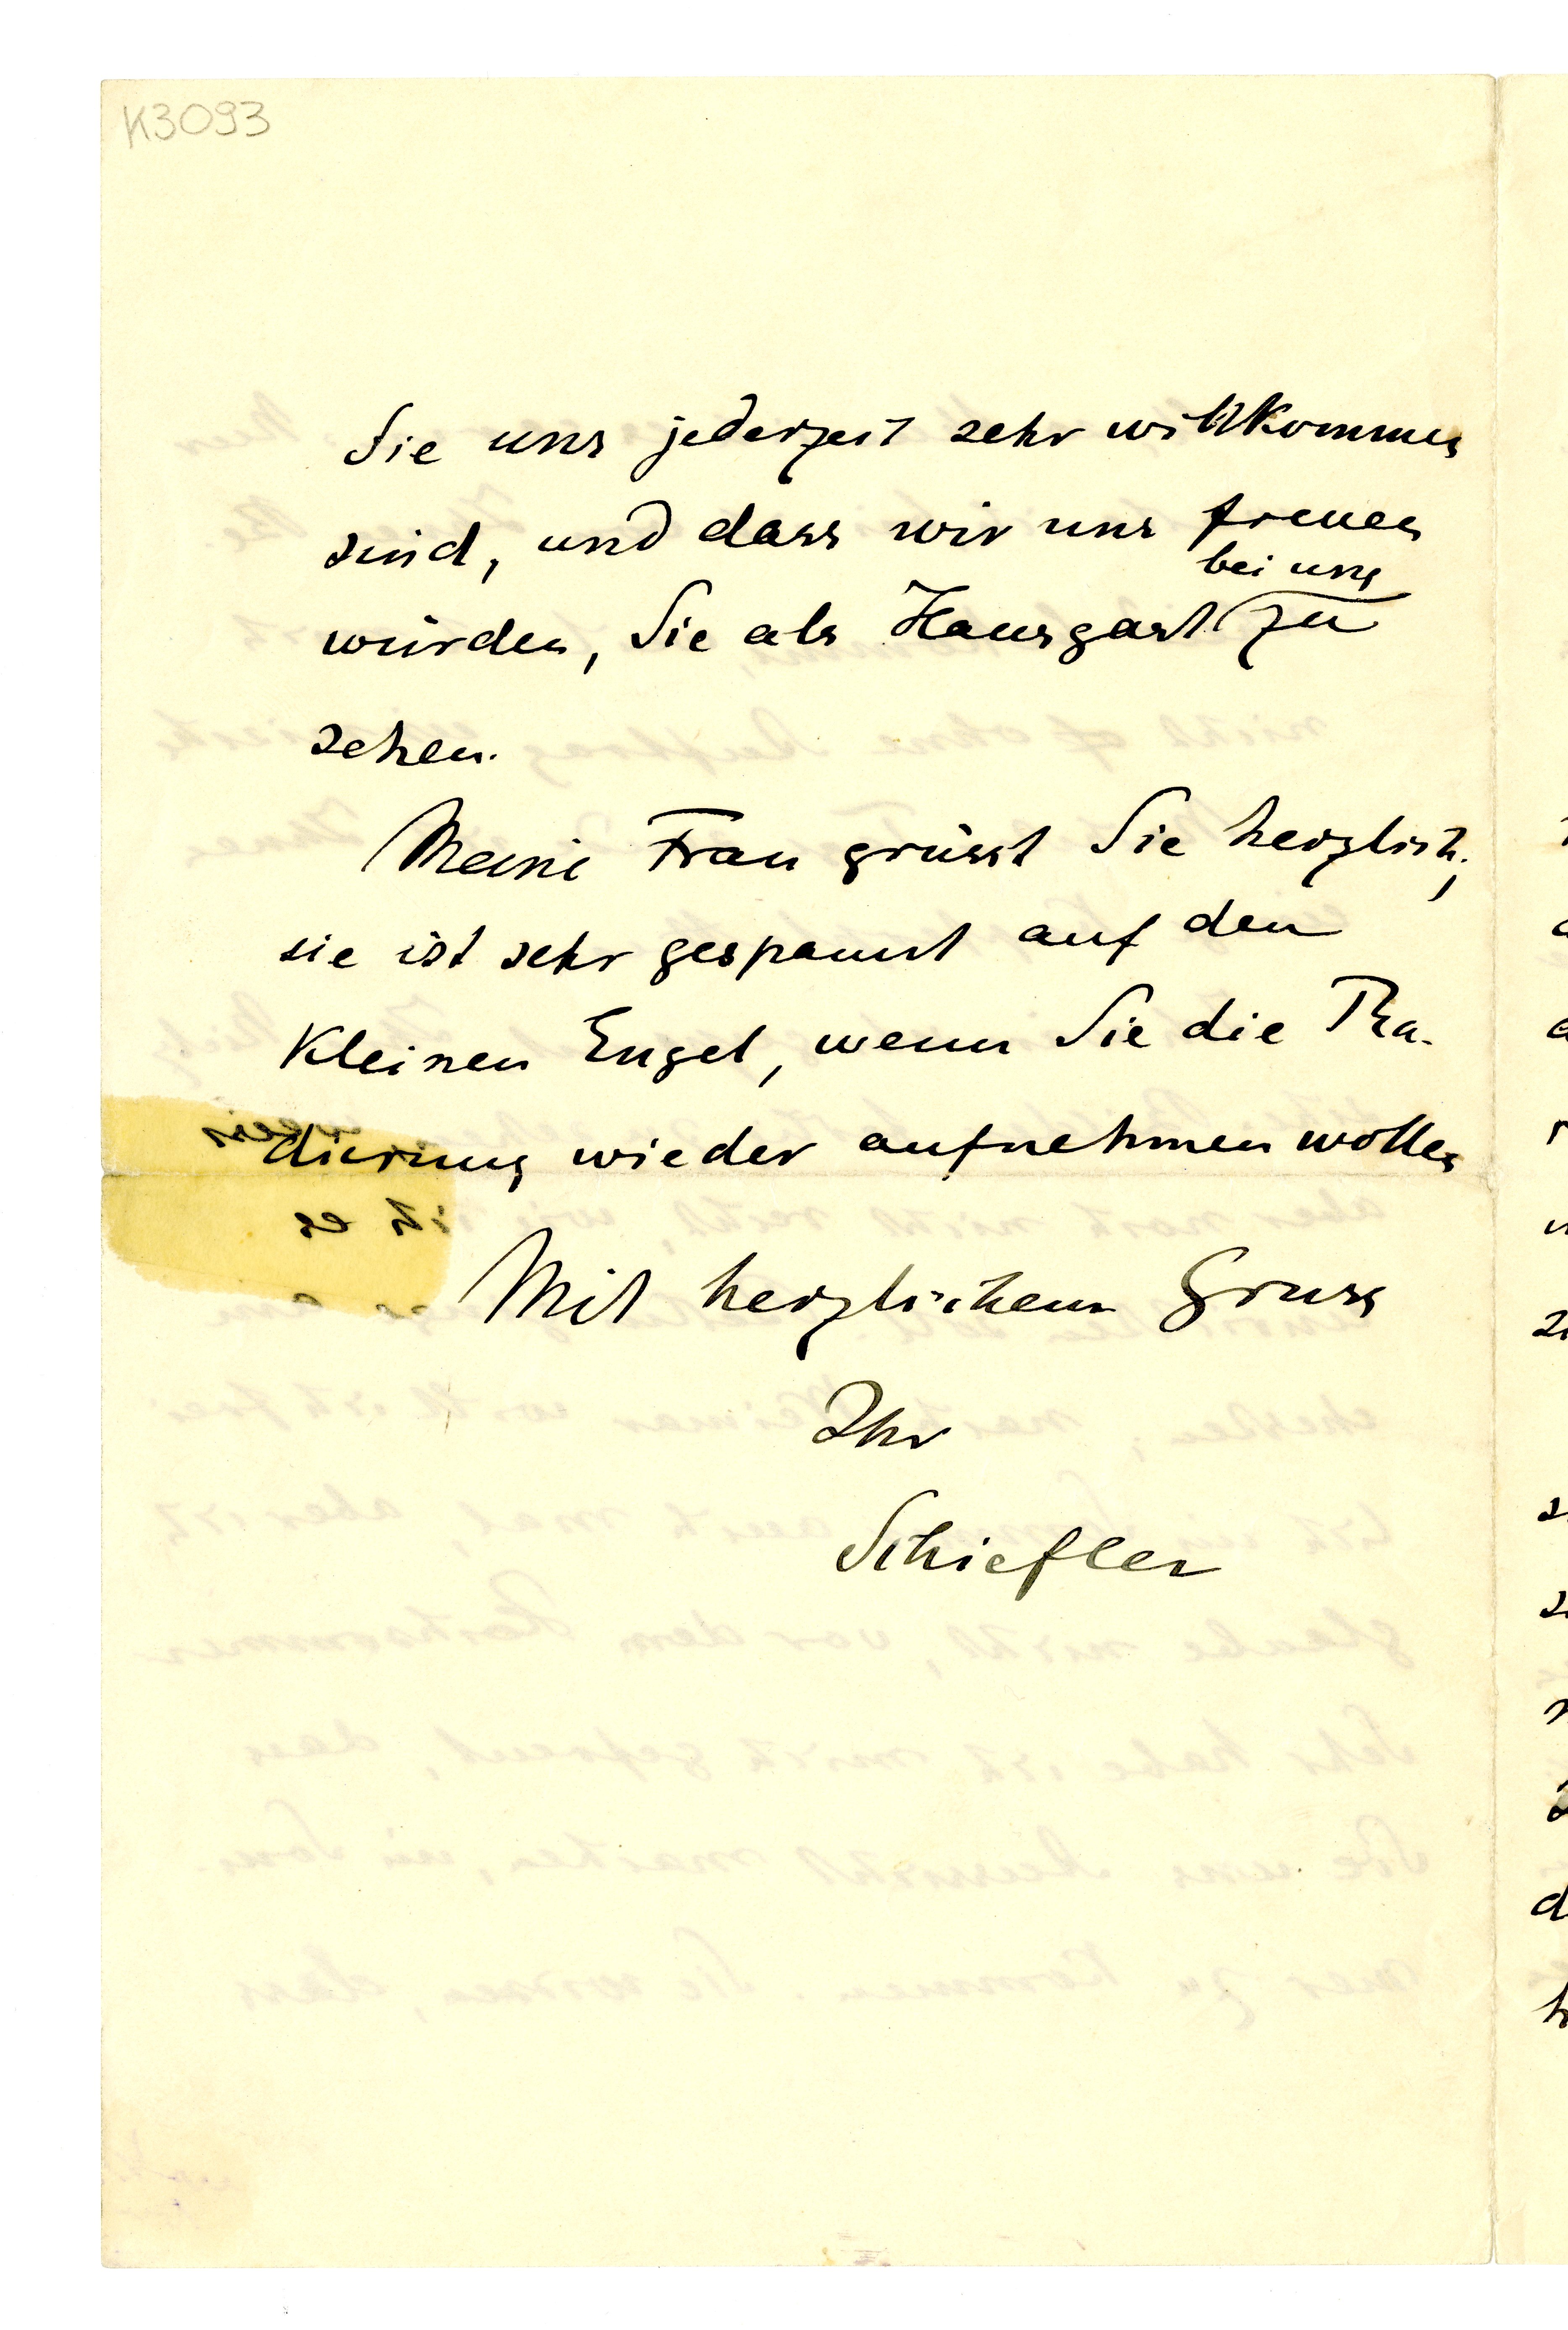 K3093
Sie uns jederzeit sehr willkommen
sind, und dass wir uns freuen
bei uns
würden, Sie als Hausgast zu
sehen.
Meine Frau grüsst Sie herzlich;
sie ist sehr gespannt auf den
kleinen Engel, wenn Sie die Ra-
dierung wieder aufnehmen wollen
Mit herzlichem Gruss
Ihr
Schiefler